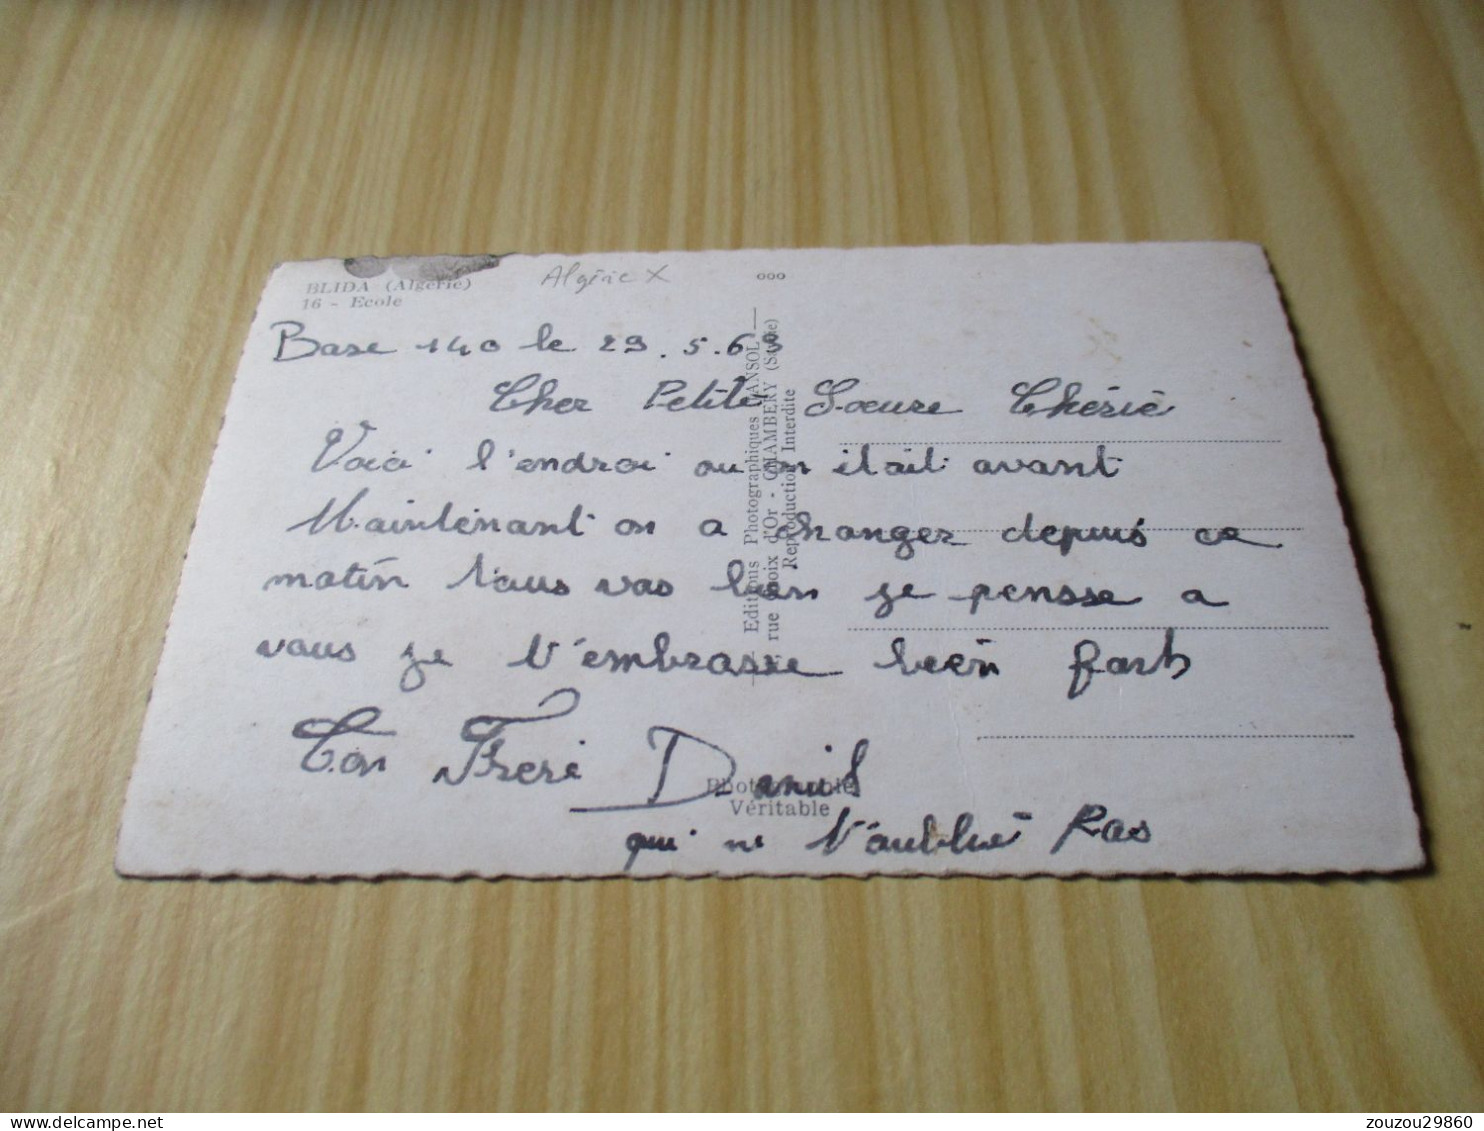 BLIDA (Algérie)
16 - Ecole
Algérie X
ooo
Base 140 le 29.5.60
Cher Petite Soeure Chérie
Voici l'endroi ou on était avant
Maintenant on a changer depuis ce
matin Tous vas bien je pensse a
vous je t'embrasse bien fort
Ton Frere Daniel
qui ne t'oublie Pas
Editions Photographiques VANSOL
rue Croix d'Or - CHAMBERY (Savoie)
Reproduction Interdite
Photographie
Véritable
zouzou29860